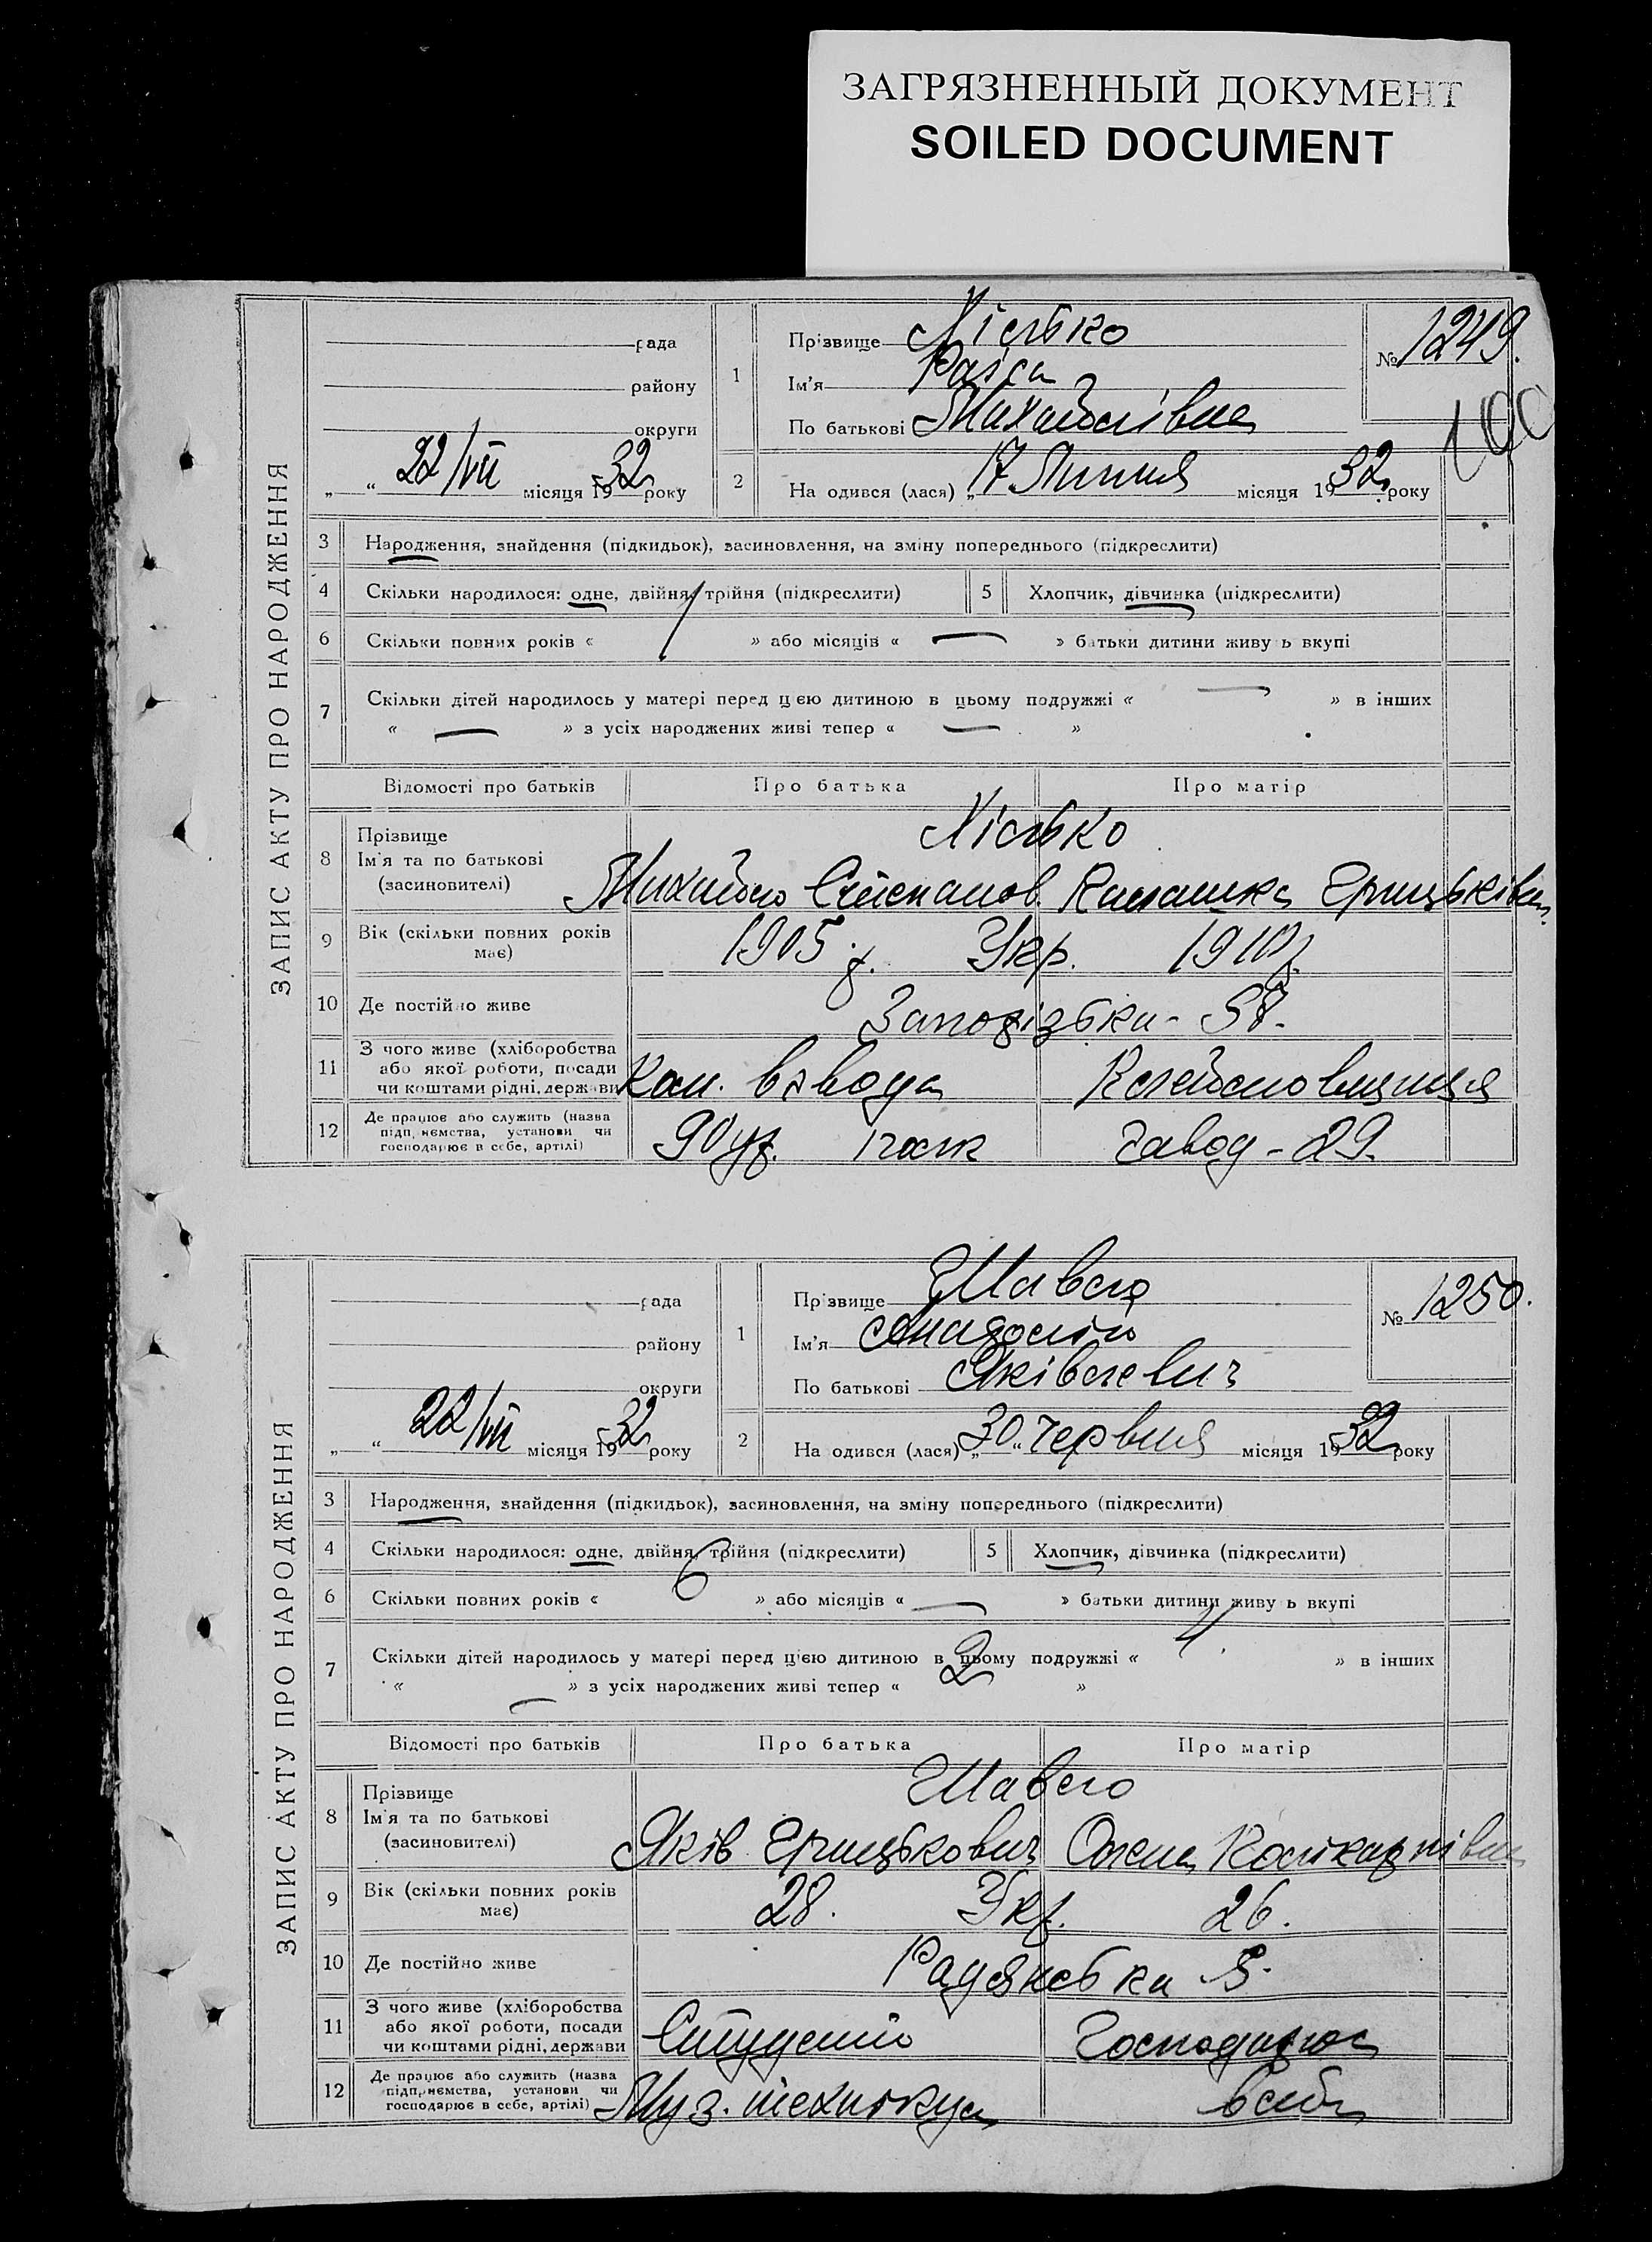 ЗАГРЯЗНЕННЫЙ ДОКУМЕНТ
SOILED DOCUMENT
ЗАПИС АКТУ ПРО НАРОДЖЕННЯ
рада
району
округи
„ “ 22/VII місяця 1932 року
1
Прізвище
Ім'я Раїса
По батькові Михайлівна
№ 1249.
100
2
На одився (лася) „17 Липня місяця 1932 року
3 Народження, знайдення (підкидьок), засиновлення, на зміну попереднього (підкреслити)
4 Скільки народилося: одне, двійня, трійня (підкреслити)
5 Хлопчик, дівчинка (підкреслити)
6 Скільки повних років « 1 » або місяців « — » батьки дитини живу ь вкупі
7 Скільки дітей народилось у матері перед цією дитиною в цьому подружжі « — » в інших
« — » з усіх народжених живі тепер « — »
Відомості про батьків Про батька Про матір
8 Прізвище
Ім'я та по батькові
(засиновителі)
Михайло Степанов.
9 Вік (скільки повних років має) 1905 р. Укр. 1910 р.
10 Де постійно живе
11 З чого живе (хліборобства або якої роботи, посади чи коштами рідні, держави Ком. взвода
12 Де працює або служить (назва підпр иємства, установи чи господарює в себе, артілі) 90 завод - 29.
ЗАПИС АКТУ ПРО НАРОДЖЕННЯ
рада
району
округи
„ “ 22/VII місяця 1932 року
1
Прізвище Шавло
Ім'я Анатолій
По батькові Яківлевич
№ 1250.
2
На одився (лася) „30“ червня місяця 1932 року
3 Народження, знайдення (підкидьок), засиновлення, на зміну попереднього (підкреслити)
4 Скільки народилося: одне, двійня, трійня (підкреслити)
5 Хлопчик, дівчинка (підкреслити)
6 Скільки повних років « 6 » або місяців « — » батьки дитини живу ь вкупі
7 Скільки дітей народилось у матері перед цією дитиною в цьому подружжі « » в інших
« — » з усіх народжених живі тепер « 2 »
Відомості про батьків Про батька Про матір
8 Прізвище
Ім'я та по батькові
(засиновителі)
Шавло
Яків Грицькович Олена Полікарпівна
9 Вік (скільки повних років має) 28. Укр. 26.
10 Де постійно живе Радянська 5.
11 З чого живе (хліборобства або якої роботи, посади чи коштами рідні, держави Студент Господарює
12 Де працює або служить (назва підпр иємства, установи чи господарює в себе, артілі) Муз. технікум в себе